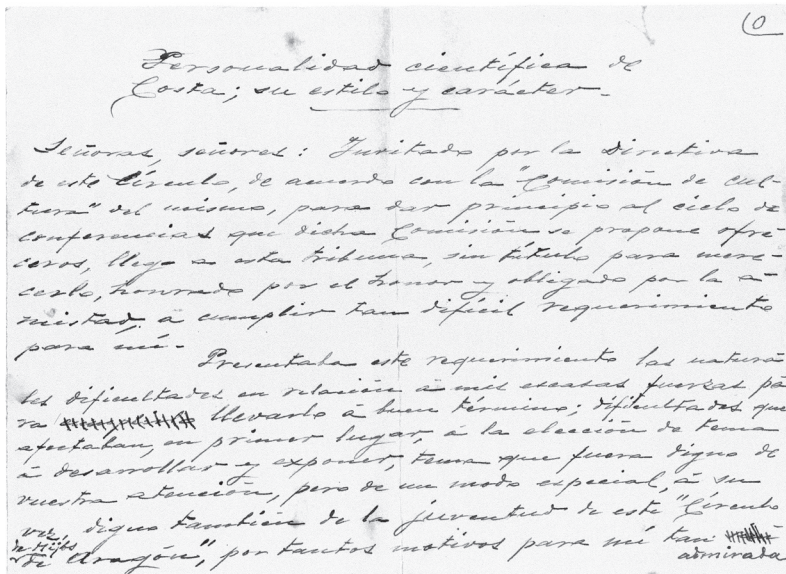 0
Personalidad científica de
Costa; su estilo y carácter.
Señoras, señores: Invitado por la Directiva
de este Círculo, de acuerdo con la "Comisión de cul-
tura" del mismo, para dar principio al ciclo de
conferencias que dicha Comisión se propone ofre-
ceros, llego a esta tribuna, sin título para mere-
cerlo, honrado por el honor y obligado por la a-
mistad, á cumplir tan difícil requerimiento
para mí.-
Presentaba este requerimiento las natura-
les dificultades en relación á mis escasas fuerzas pa-
ra llevarlo á buen término; dificultades que
afectaban, en primer lugar, á la elección de tema
á desarrollar y exponer, tema que fuera digno de
vuestra atención, pero de un modo especial, á su
vez, digno también de la juventud de este "Círculo
de Hijos
de Aragón", por tantos motivos para mí tan
admirada